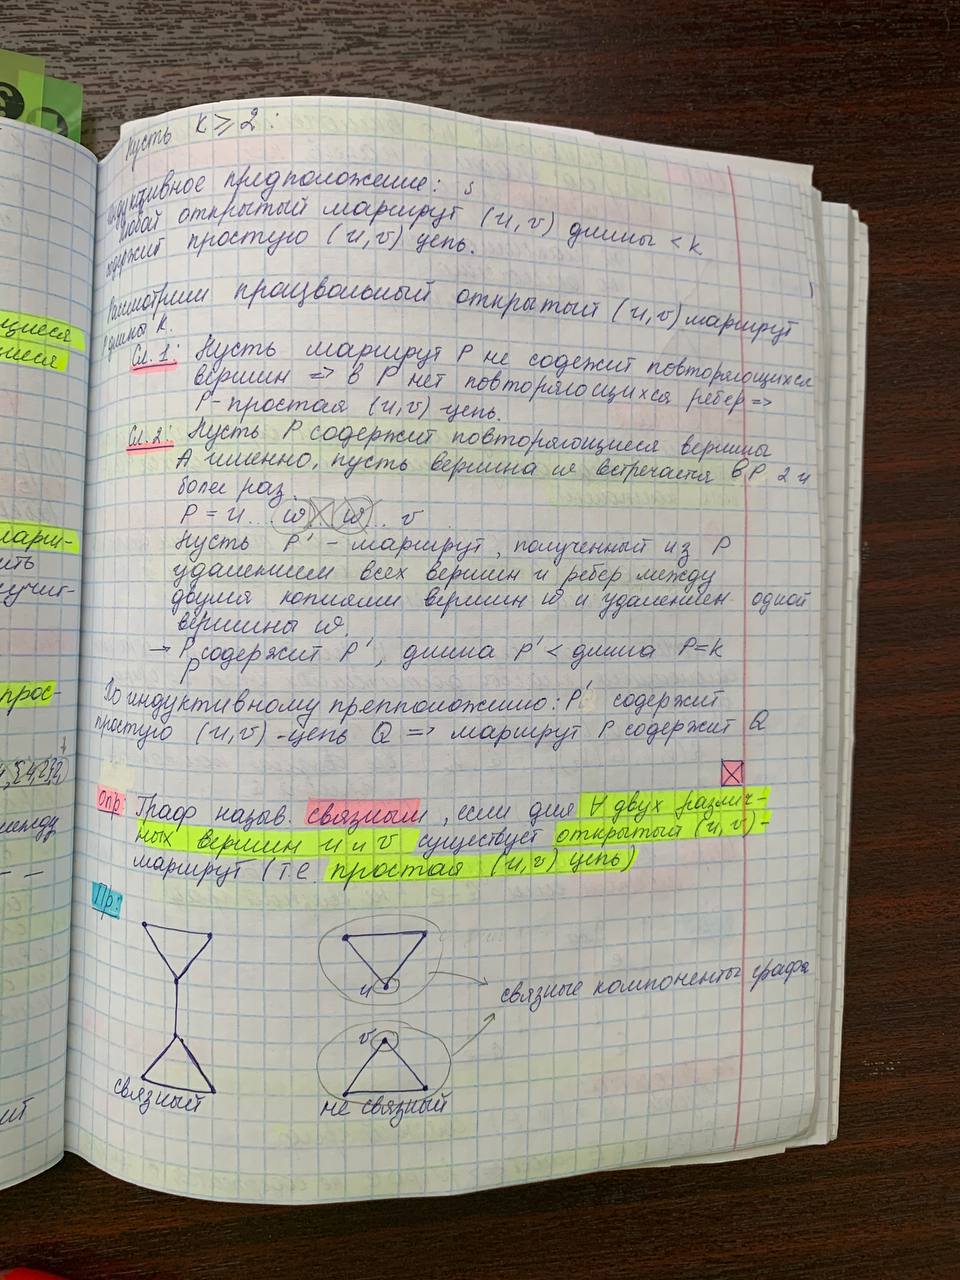 щиеся
щиеся
марш-
ить
лучит-
прос-
между
Пусть k ⩾ 2:
Индуктивное предположение:
любой открытый маршрут (u, v) длины < k
содержит простую (u, v) цепь.
Рассмотрим працвольный открытый (u, v) маршрут
P длины k.
Сл. 1: Пусть маршрут P не содежит повторяющихся
вершин => в P нет повторяющихся ребер =>
P - простая (u, v) цепь.
Сл. 2: Пусть P содержит повторяющиеся вершины
А именно, пусть вершина w встречается в P 2 и
более раз.
P = u .. w .. w .. v
Пусть P' - маршрут, полученный из P
удалением всех вершин и ребер между
двумя копиями вершин w и удалением одной
вершины w.
→ P содержит P', длина P' < длина P = k
P
По индуктивному препположению: P' содержит
простую (u, v) - цепь Q => маршрут P содержит Q
Опр: Граф назыв. связным, если для ∀ двух различ-
ных вершин u и v существует открытый (u, v) -
маршрут (т.е. простая (u, v) цепь)
Пр:
u
связные компоненты графа
v
связный
не связный